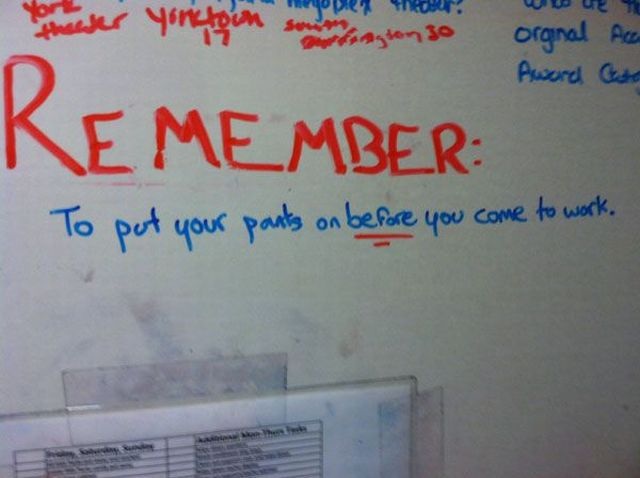 York megoplex theater?
theater Yorktown South
17 Barrington 30
orginal Aca
Award Cate
REMEMBER:
To put your pants on before you come to work.
Friday, Saturday, Sunday Additional Mon-Thurs Tasks